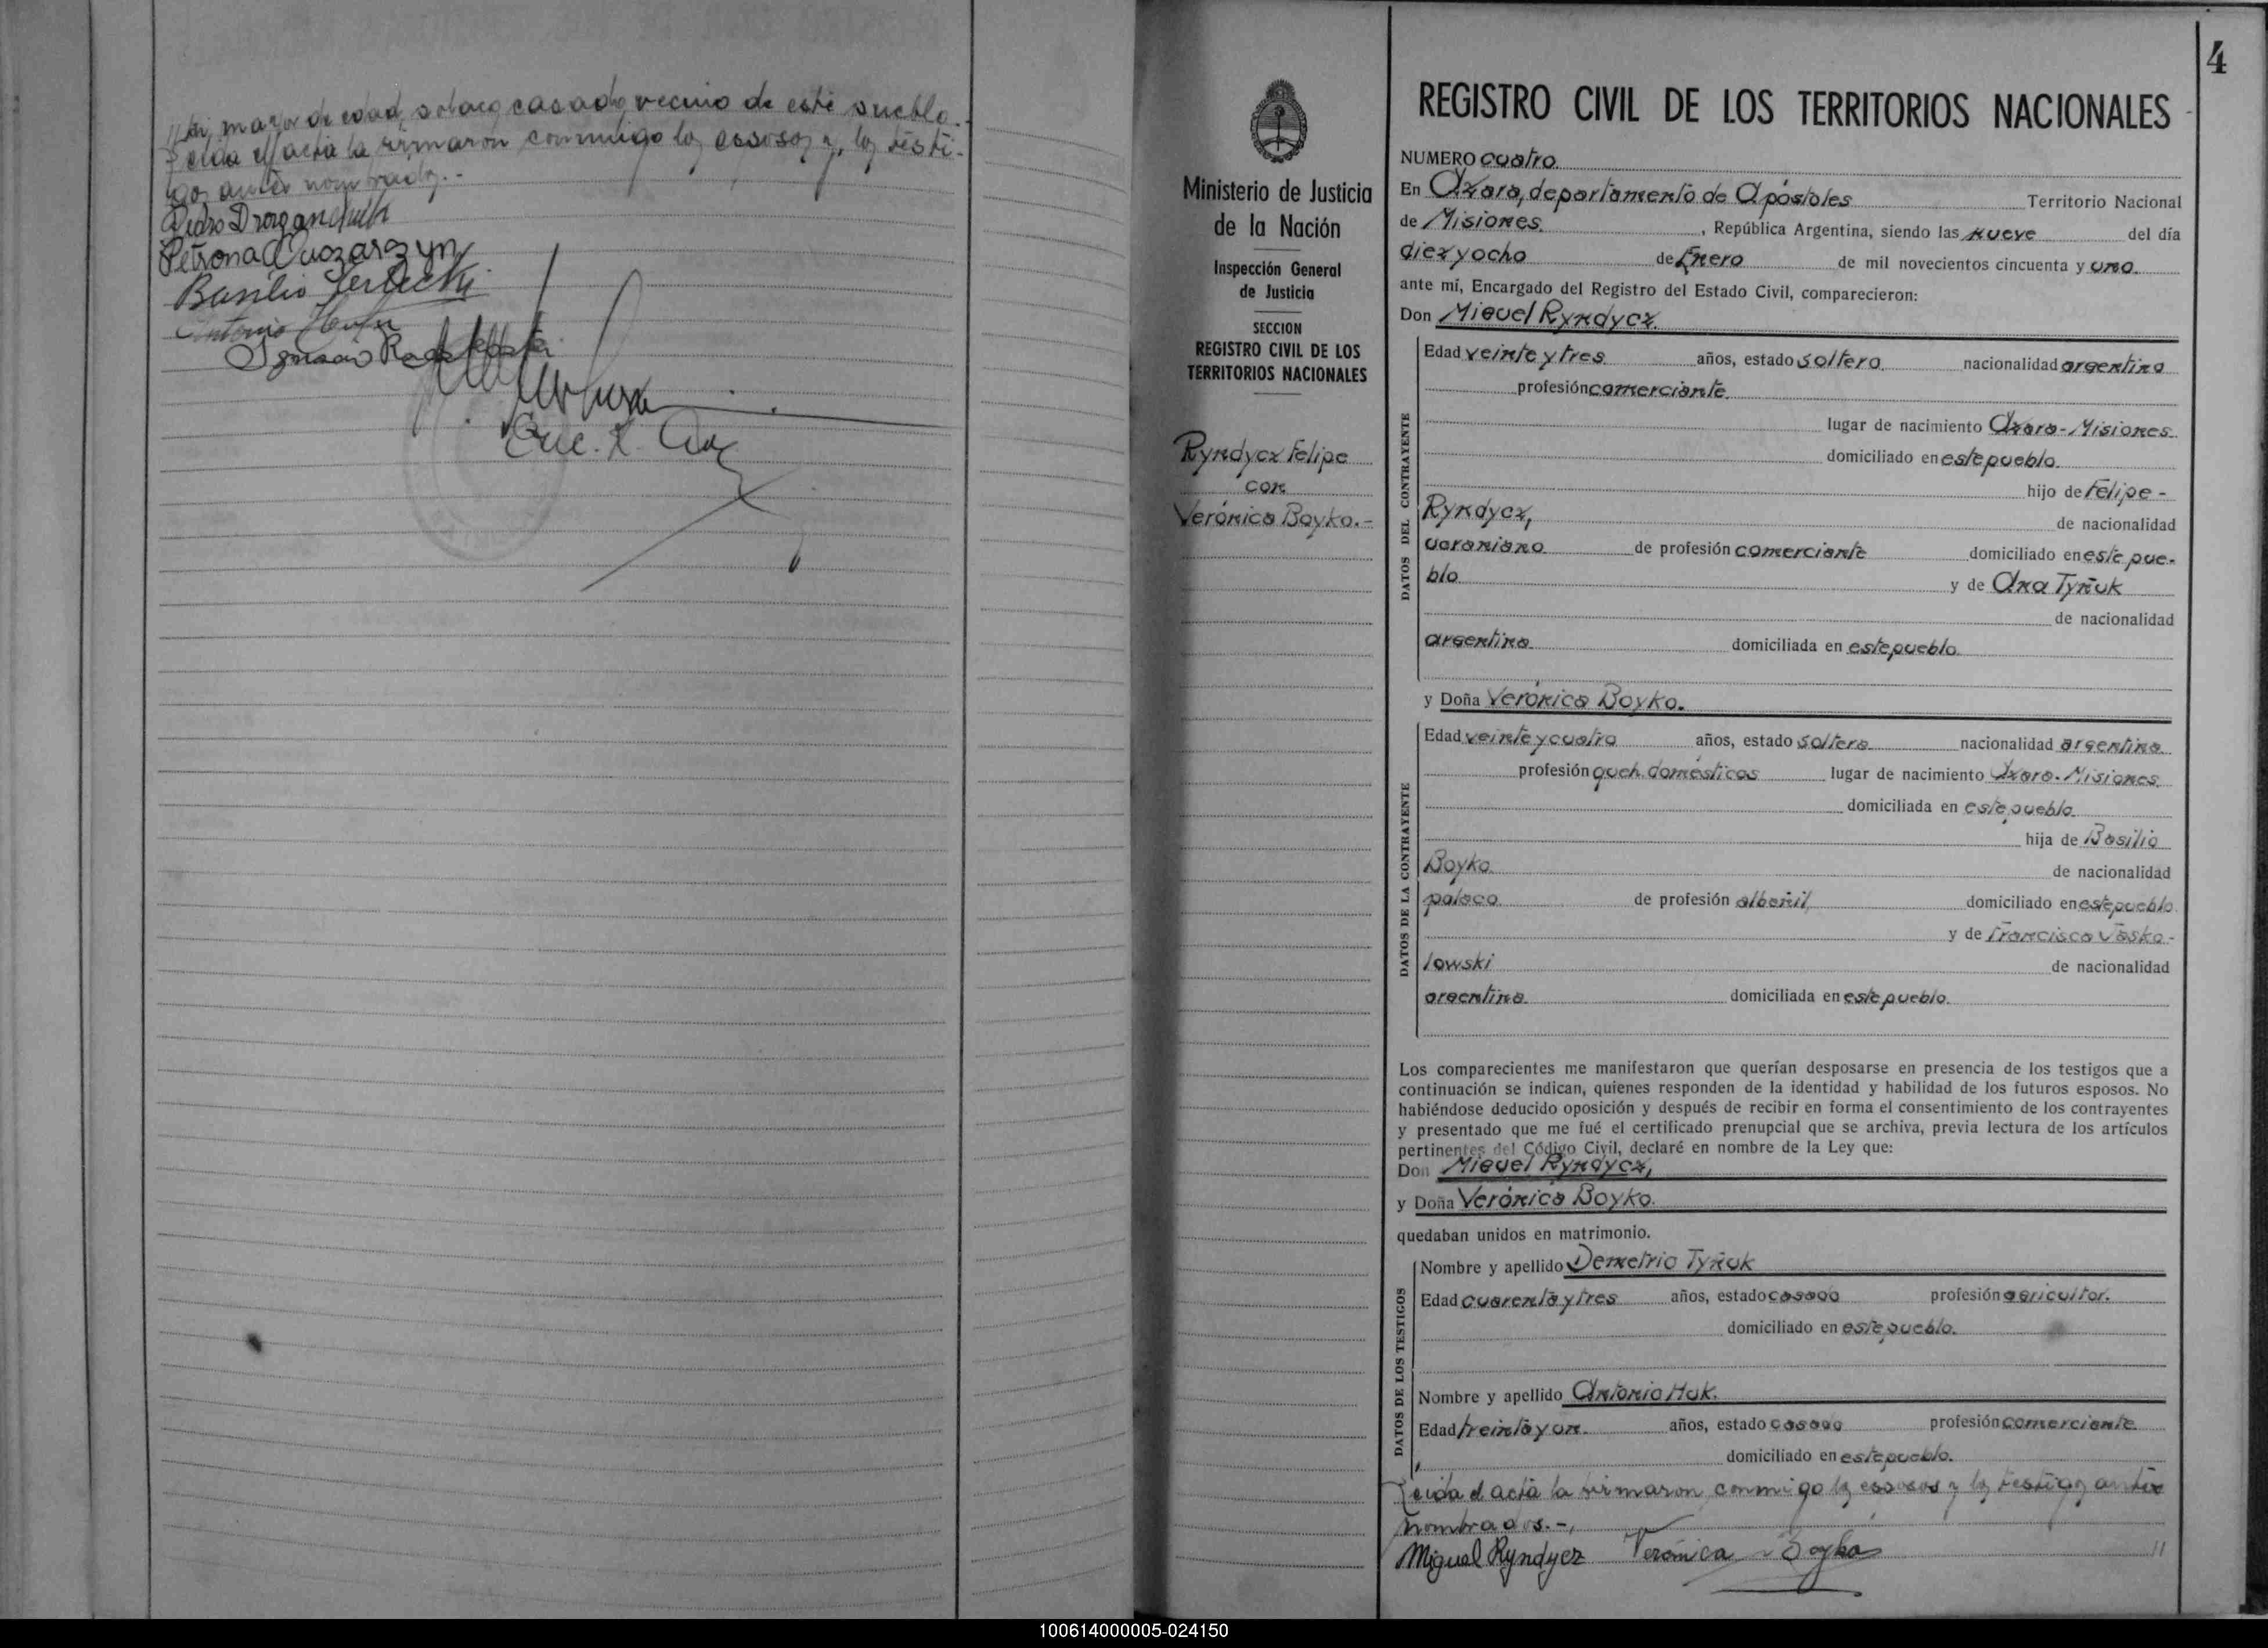 mayor de edad, polaco, casado, vecino de este pueblo.-
Leida el acta la firmaron conmigo los esposos y los testi-
gos antes nombrados.-
Pedro
Petrona
Basilio
Antonio
Ignacio
Enc. R. Civ
4
Ministerio de Justicia
de la Nación
Inspección General
de Justicia
SECCION
REGISTRO CIVIL DE LOS
TERRITORIOS NACIONALES
Ryndycz Felipe
con
Verónica Boyko.-
REGISTRO CIVIL DE LOS TERRITORIOS NACIONALES
NUMERO cuatro.
En Azara, departamento de Apóstoles Territorio Nacional
de Misiones. , República Argentina, siendo las nueve del día
diez y ocho de Enero de mil novecientos cincuenta y uno.
ante mí, Encargado del Registro del Estado Civil, comparecieron:
Don Miguel Ryndycz.
DATOS DEL CONTRAYENTE
Edad veinte y tres años, estado soltero. nacionalidad argentina
profesión comerciante.
lugar de nacimiento Azara-Misiones.
domiciliado en este pueblo.
hijo de Felipe-
Ryndycz, de nacionalidad
ucraniano de profesión comerciante domiciliado en este pue-
blo y de Ana Tyñuk
de nacionalidad
argentina. domiciliada en este pueblo.
y Doña Verónica Boyko.
DATOS DE LA CONTRAYENTE
Edad veinte y cuatro años, estado soltera nacionalidad argentina.
profesión queh. domésticos lugar de nacimiento Azara-Misiones.
domiciliada en este pueblo.
hija de Basilio
Boyko. de nacionalidad
polaco. de profesión albañil, domiciliado en este pueblo
y de Francisca Vasko-
lowski de nacionalidad
argentina. domiciliada en este pueblo.
Los comparecientes me manifestaron que querían desposarse en presencia de los testigos que a
continuación se indican, quienes responden de la identidad y habilidad de los futuros esposos. No
habiéndose deducido oposición y después de recibir en forma el consentimiento de los contrayentes
y presentado que me fué el certificado prenupcial que se archiva, previa lectura de los artículos
pertinentes del Código Civil, declaré en nombre de la Ley que:
Don Miguel Ryndycz,
y Doña Verónica Boyko.
quedaban unidos en matrimonio.
DATOS DE LOS TESTIGOS
Nombre y apellido Demetrio Tyñuk
Edad cuarenta y tres años, estado casado profesión agricultor.
domiciliado en este pueblo.
Nombre y apellido Antonio Huk.
Edad treinta y un. años, estado casado profesión comerciante.
domiciliado en este pueblo.
Leida el acta la firmaron conmigo los esposos y los testigos antes
nombrados.-,
Miguel Ryndycz Verónica Boyko //
100614000005-024150